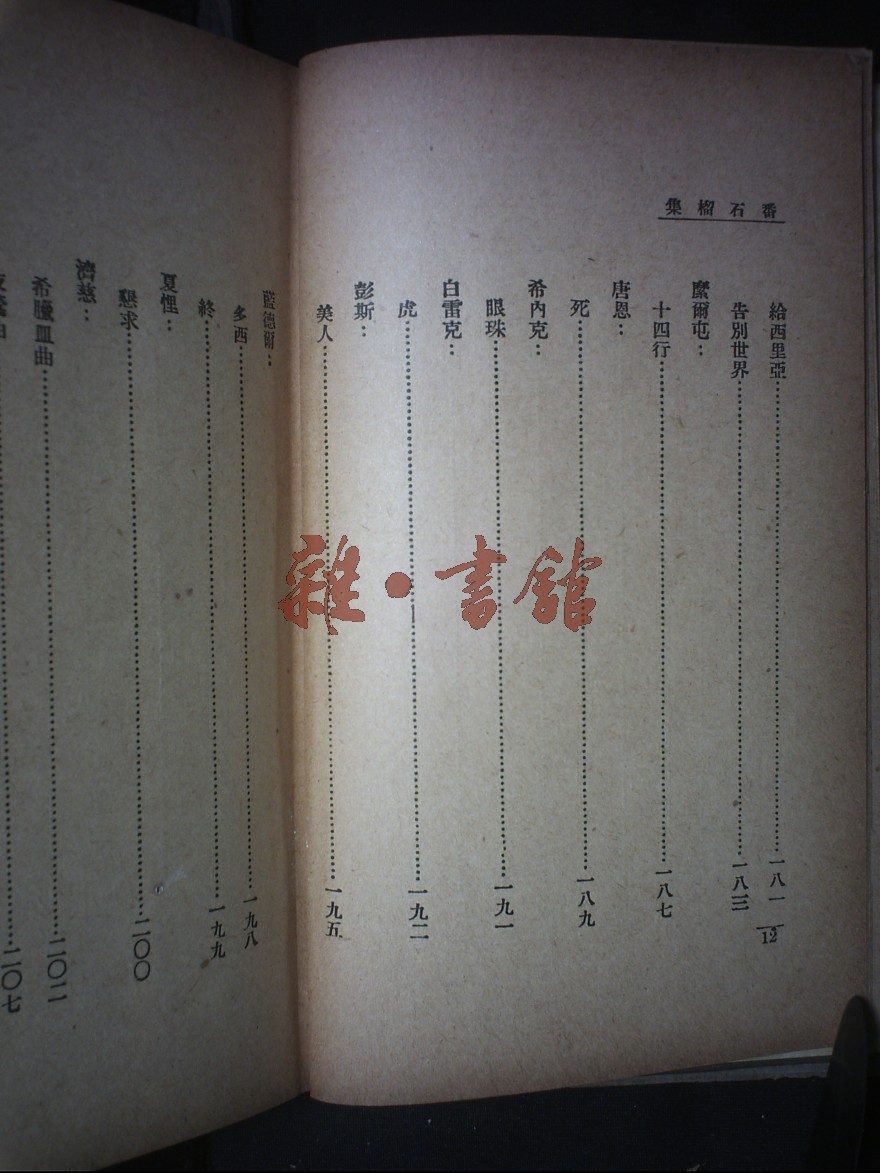 番石榴集
給西里亞……一八一
告別世界……一八三
縻爾屯：
十四行……一八七
唐恩：
死……一八九
希內克：
眼珠……一九一
白雷克：
虎……一九二
彭斯：
美人……一九五
12
藍德爾：
多西……一九八
終……一九九
夏悝：
懇求……二〇〇
濟慈：
希臘皿曲……二〇二
二〇七
雜·書館